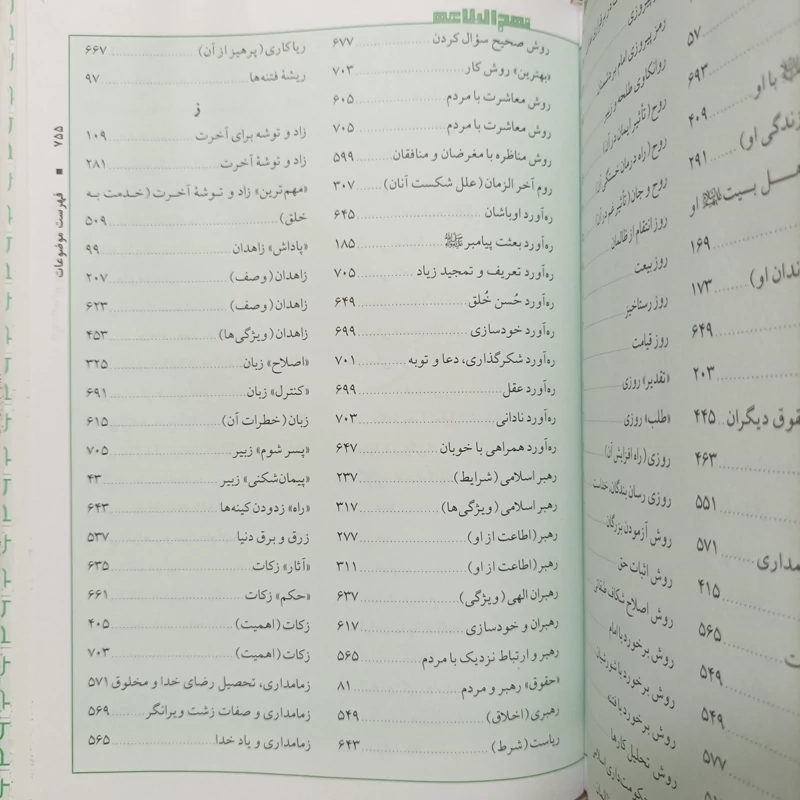 نهج البلاغه
روش صحیح سؤال کردن ۶۷۷
«بهترین» روش کار ۷۰۳
روش معاشرت با مردم ۶۰۵
روش معاشرت با مردم ۷۰۵
روش مناظره با مغرضان و منافقان ۵۹۹
روم آخر الزمان (علل شکست آنان) ۳۰۷
ره‌آورد اوباشان ۶۴۵
ره‌آورد بعثت پیامبر ﷺ ۱۸۵
ره‌آورد تعریف و تمجید زیاد ۷۰۵
ره‌آورد حُسن خُلق ۶۴۹
ره‌آورد خودسازی ۶۹۹
ره‌آورد شکرگذاری، دعا و توبه ۷۰۱
ره‌آورد عقل ۶۹۹
ره‌آورد نادانی ۷۰۳
ره‌آورد همراهی با خوبان ۶۴۷
رهبر اسلامی (شرایط) ۲۳۷
رهبر اسلامی (ویژگی‌ها) ۳۱۷
رهبر (اطاعت از او) ۲۷۷
رهبر (اطاعت از او) ۳۱۱
رهبران الهی (ویژگی) ۶۳۷
رهبران و خودسازی ۶۱۷
رهبر و ارتباط نزدیک با مردم ۵۶۵
«حقوق» رهبر و مردم ۸۱
رهبری (اخلاق) ۵۴۹
ریاست (شرط) ۶۴۳
ریاکاری (پرهیز از آن) ۶۶۷
ریشهٔ فتنه‌ها ۹۷
ز
زاد و توشه برای آخرت ۱۰۹
زاد و توشهٔ آخرت ۲۸۱
«مهم‌ترین» زاد و توشهٔ آخرت (خدمت به
خلق) ۵۰۹
«پاداش» زاهدان ۹۹
زاهدان (وصف) ۲۰۷
زاهدان (وصف) ۶۲۳
زاهدان (ویژگی‌ها) ۴۵۳
«اصلاح» زبان ۳۲۵
«کنترل» زبان ۶۹۱
زبان (خطرات آن) ۶۱۵
«پسر شوم» زبیر ۷۰۵
«پیمان‌شکنی» زبیر ۴۳
«راه» زدودن کینه‌ها ۶۴۳
زرق و برق دنیا ۵۳۷
«آثار» زکات ۶۳۵
«حکم» زکات ۶۶۱
زکات (اهمیت) ۴۰۵
زکات (اهمیت) ۷۰۳
زمامداری، تحصیل رضای خدا و مخلوق ۵۷۱
زمامداری و صفات زشت ویرانگر ۵۶۹
زمامداری و یاد خدا ۵۶۵
فهرست موضوعات ■ ۷۵۵
رمز پیروزی امام بر دشمنان
روانکاوی طلحه و زبیر
روح (تأثیر ایمان در آن)
روح (راه درمان خستگی آن)
روح و جان (تأثیر غم در آن)
روز انتقام از ظالمان
روز بیعت
روز رستاخیز
روز قیامت
«تقدیر» روزی
«طلب» روزی
روزی (راه افزایش آن)
روزی رسان بندگان، خداست
روش آزمودن بزرگان
روش اثبات حق
روش اصلاح شکاف طبقاتی
روش برخورد با امام
روش برخورد با شورشیان
روش برخورد با فتنه
روش تحلیل کارها
۵۷
۶۹۳
با او
۴۰۹
زندگی او)
۲۹۱
اهل بیت او
۱۶۹
۱۷۳
۶۴۹
۲۰۳
حقوق دیگران ۴۴۵
۴۶۳
۵۵۱
۵۷۱
۴۱۵
۵۶۵
۵۴۹
۵۴۹
۵۷۷